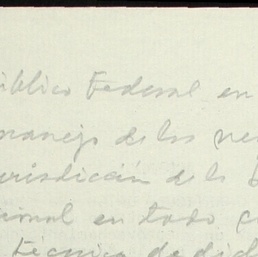 úblico Federal en
manejo de los ne
urisdicción de la
ional en todo c
técnico de dich